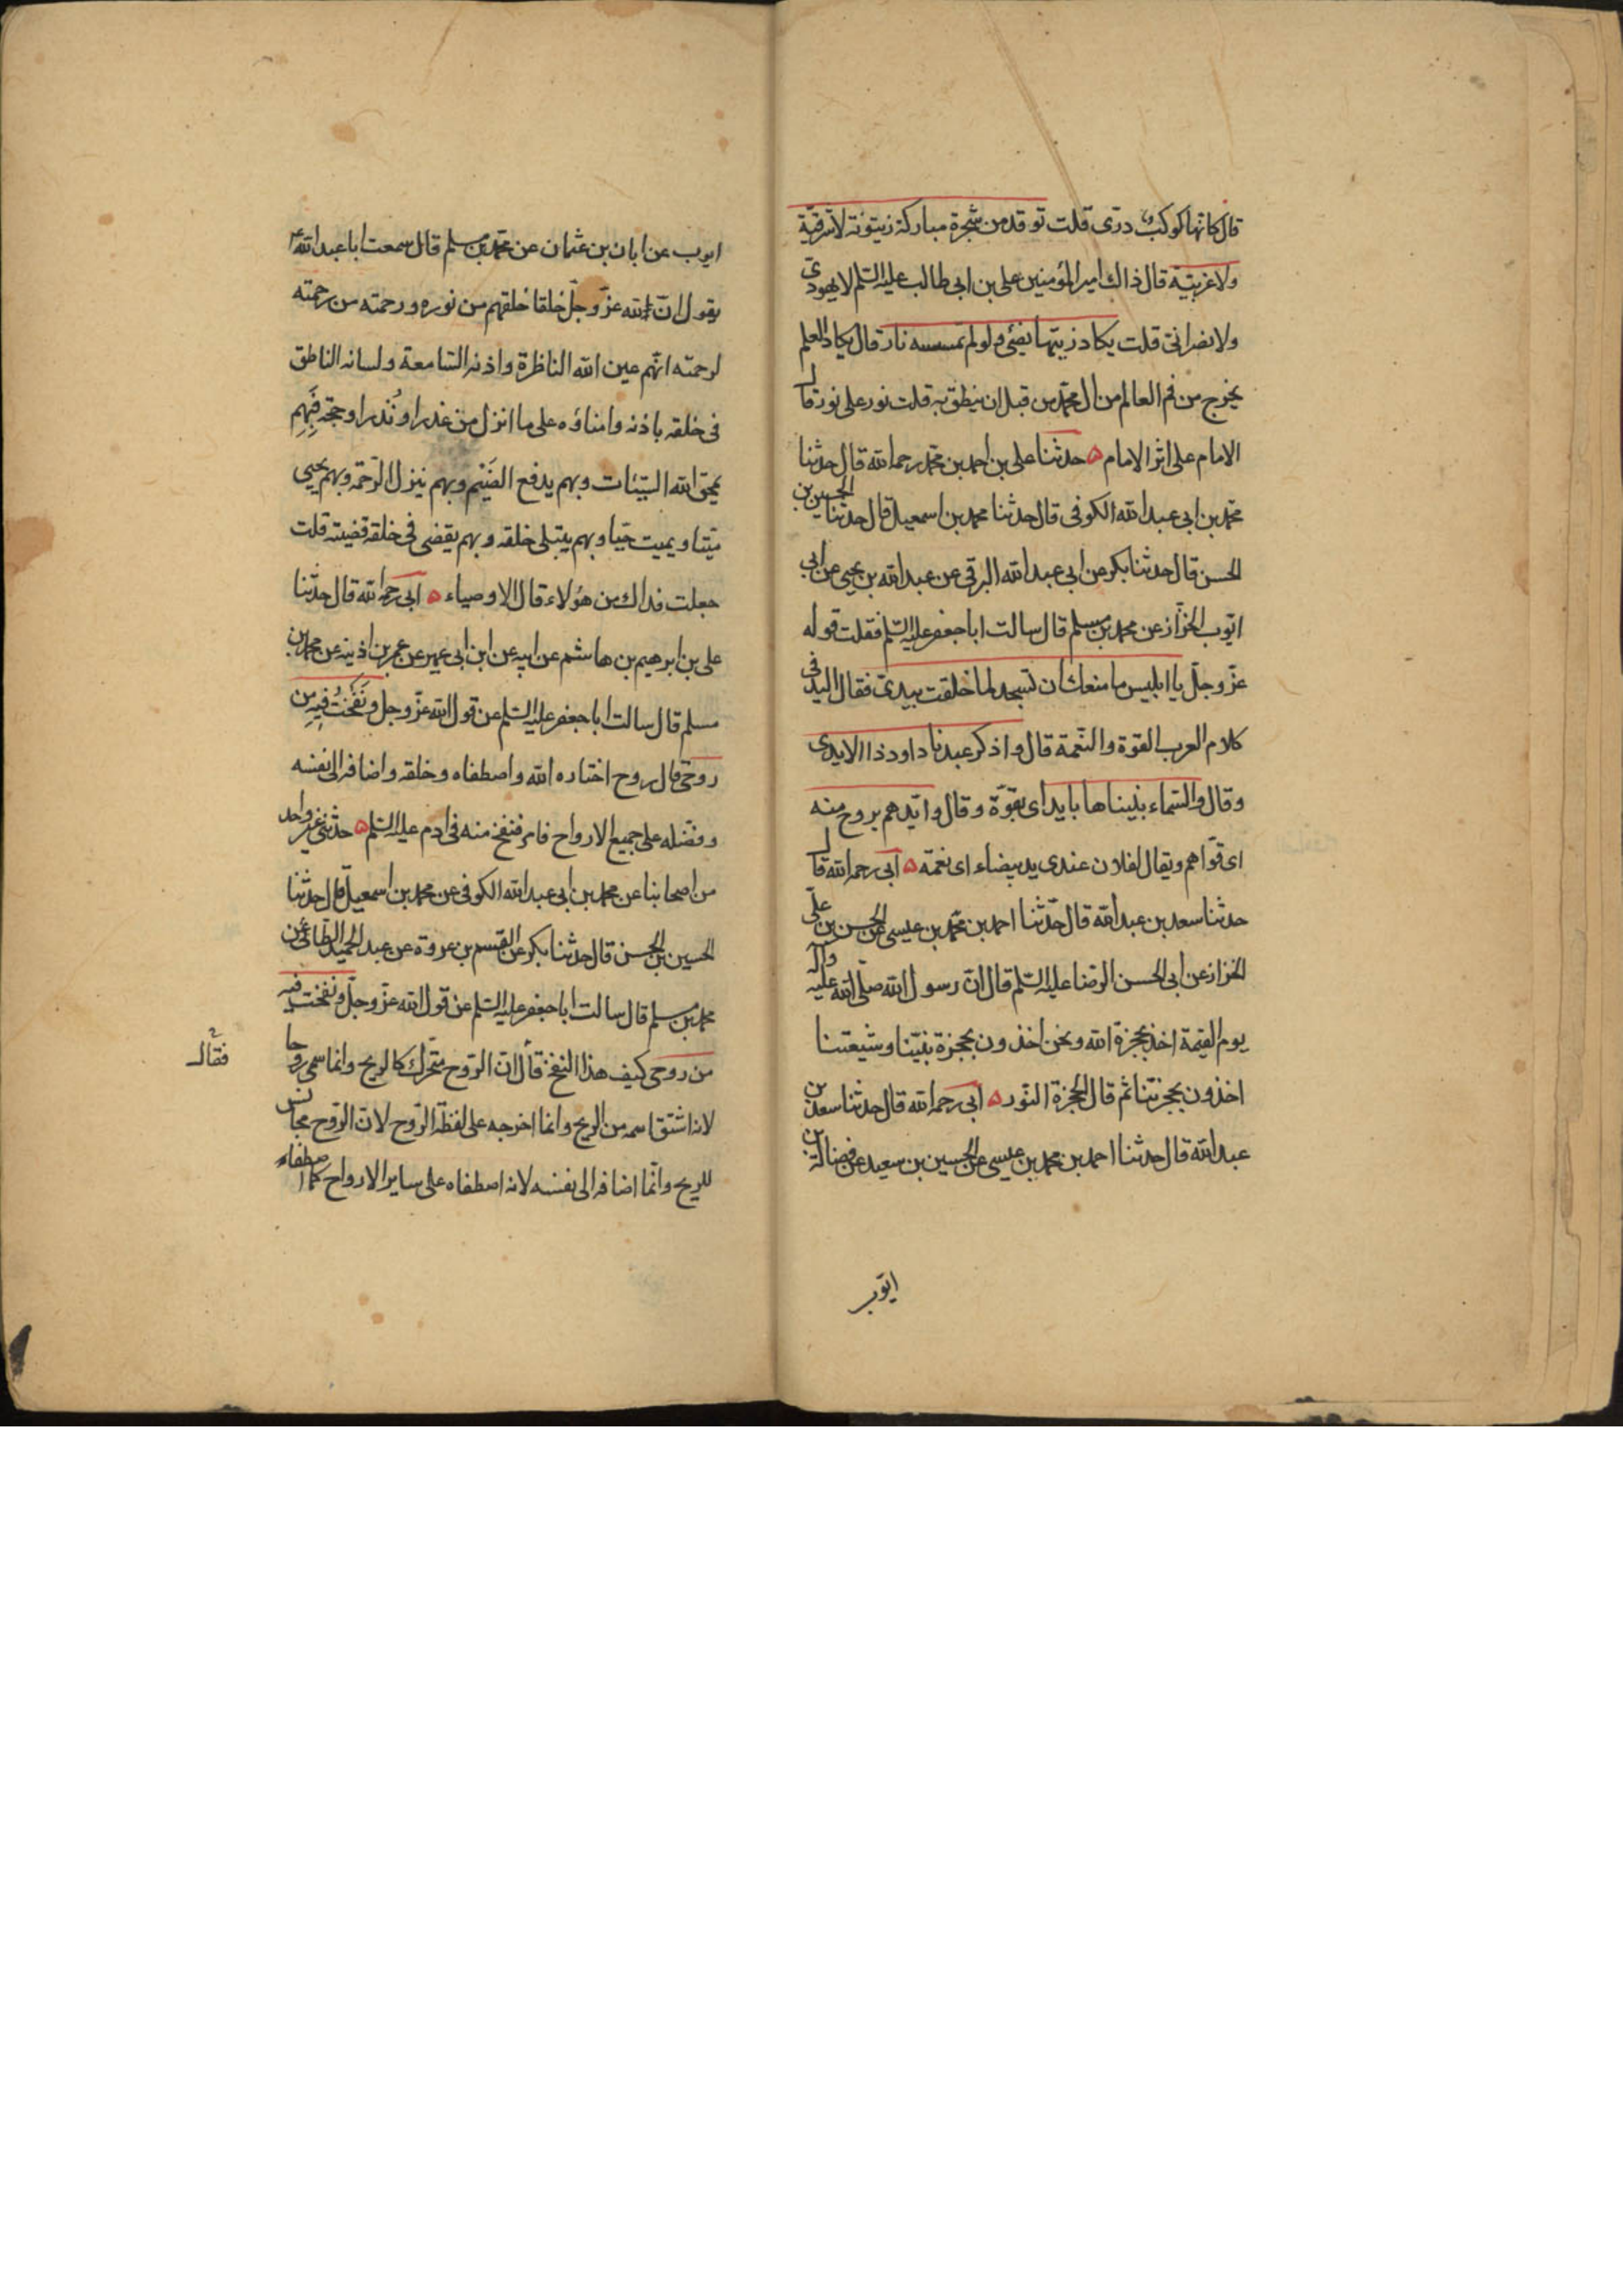 قال كانها كوكب درى قلت توقد من شجرة مباركة زيتونة لا شرقية
ولا غربية قال ذاك امير المؤمنين على بن ابى طالب عليه السلم لا يهودى
ولا نصرانى قلت يكاد زيتها يضئ ولو لم تمسسه نار قال يكاد العلم
يخرج من فم العالم من ال محمد من قبل ان ينطق به قلت نور على نور قال
الامام على اثر الامام ه حدثنا على بن احمد بن محمد رحمه الله قال حدثنا
محمد بن ابى عبد الله الكوفى قال حدثنا محمد بن اسمعيل قال حدثنا الحسين بن
الحسن قال حدثنا بكر عن ابى عبد الله البرقى عن عبد الله بن يحيى عن ابى
ايوب الخزاز عن محمد بن مسلم قال سالت ابا جعفر عليه السلم فقلت قوله
عز وجل يا ابليس ما منعك ان تسجد لما خلقت بيدى فقال اليد فى
كلام العرب القوة والنعمة قال واذكر عبدنا داود ذا الايدى
وقال والسماء بنيناها بايد اى بقوة وقال وايدهم بروح منه
اى قواهم ويقال لفلان عندى يد بيضاء اى نعمة ه ابى رحمه الله قال
حدثنا سعد بن عبد الله قال حدثنا احمد بن محمد بن عيسى عن الحسن بن على
الخزاز عن ابى الحسن الرضا عليه السلم قال ان رسول الله صلى الله عليه واله
يوم القيمة اخذ بحجزة الله ونحن اخذون بحجزة نبينا وشيعتنا
اخذون بحجزتنا ثم قال الحجزة النور ه ابى رحمه الله قال حدثنا سعد بن
عبد الله قال حدثنا احمد بن محمد بن عيسى عن الحسين بن سعيد عن فضالة بن
ايوب
ايوب عن ابان بن عثمان عن محمد بن مسلم قال سمعت ابا عبد الله ع
يقول ان لله عز وجل خلقا خلقهم من نوره ورحمته من رحمته
لرحمته انهم عين الله الناظرة واذنه السامعة ولسانه الناطق
فى خلقه باذنه وامناؤه على ما انزل من عذر او نُذر او حجة فَبِهِم
يمحق الله السيئات وبهم يدفع الضَيْم وبهم ينزل الرحمة وبهم يحيى
ميتا ويميت حيا وبهم يبتلى خلقه وبهم يقضى فى خلقه قضيته قلت
جعلت فداك من هؤلاء قال الاوصياء ه ابى رحمه الله قال حدثنا
على بن ابرهيم بن هاشم عن ابيه عن ابن ابى عمير عن عمر بن اذينه عن محمد بن
مسلم قال سالت ابا جعفر عليه السلم عن قول الله عز وجل ونَفَختُ فِيهِ مِن
روحى قال روح اختاره الله واصطفاه وخلقه واضافه الى نفسه
وفضله على جميع الارواح فامر فنفخ منه فى ادم عليه السلم ه حدثنى غير واحد
من اصحابنا عن محمد بن ابى عبد الله الكوفى عن محمد بن اسمعيل قال حدثنا
الحسين بن الحسن قال حدثنا بكر عن القسم بن عروة عن عبد الحميد الطائى عن
محمد بن مسلم قال سالت ابا جعفر عليه السلم عن قول الله عز وجل ونفخت فيه
من روحى كيف هذا النفخ قال ان الروح متحرك كالريح وانما سمى روحا
فقال
لانه اشتق اسمه من الريح وانما اخرجه على لفظة الروح لان الروح مجانس
للريح وانما اضافه الى نفسه لانه اصطفاه على ساير الارواح كما اصطفاه